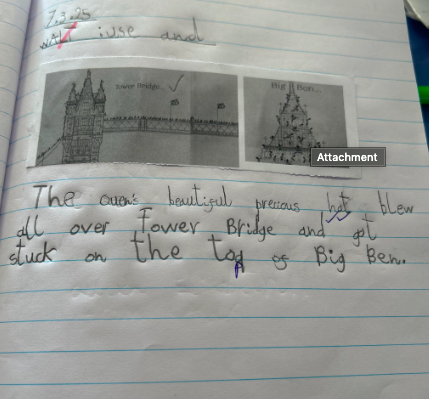 7.3.25
WALT iuse and
Tower Bridge...
Big Ben...
Attachment
The Queen's beautiful precious hat blew
all over Tower Bridge and got
stuck on the top of Big Ben.